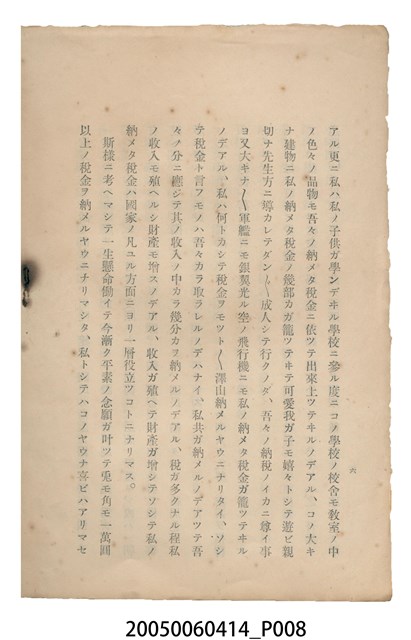 アル更ニ私ハ私ノ子供ガ學ンデヰル學校ニ參ル度ニコノ學校ノ校舍モ教室ノ中
ノ色々ノ品物モ吾々ノ納メタ税金ニ依ツテ出來上ツテヰルノデアル、コノ大キ
ナ建物ニ私ノ納メタ税金ノ幾部カガ籠ツテヰテ可愛我ガ子モ嬉々トシテ遊ビ親
切ナ先生方ニ導カレテダン〱成人シテ行クノダ、吾々ノ納税ノイカニ尊イ事
ヨ又大キナ〱軍艦ニモ銀翼光ル空ノ飛行機ニモ私ノ納メタ税金ガ籠ツテヰル
ノデアル、私ハ何トカシテ税金ヲモツト〱澤山納メルヤウニナリタイ、ソシ
テ税金ト言フモノハ吾々カラ取ラレルノデハナイ、私共ガ納メルノデアツテ吾
々ノ分ニ應ジテ其ノ收入ノ中カラ幾分カヲ納メルノデアル、税ガ多クナル程私
ノ收入モ殖ヘルシ財產モ增スノデアル、收入ガ殖ヘテ財產ガ增シテソシテ私ノ
納メタ税金ハ國家ノ凡ユル方面ニヨリ一層役立ツコトニナリマス。
斯樣ニ考ヘマシテ一生懸命働イテ今漸ク平素ノ念願ガ叶ツテ兎モ角モ一萬圓
以上ノ税金ヲ納メルヤウニナリマシタ、私トシテハコノヤウナ喜ビハアリマセ
六
20050060414_P008